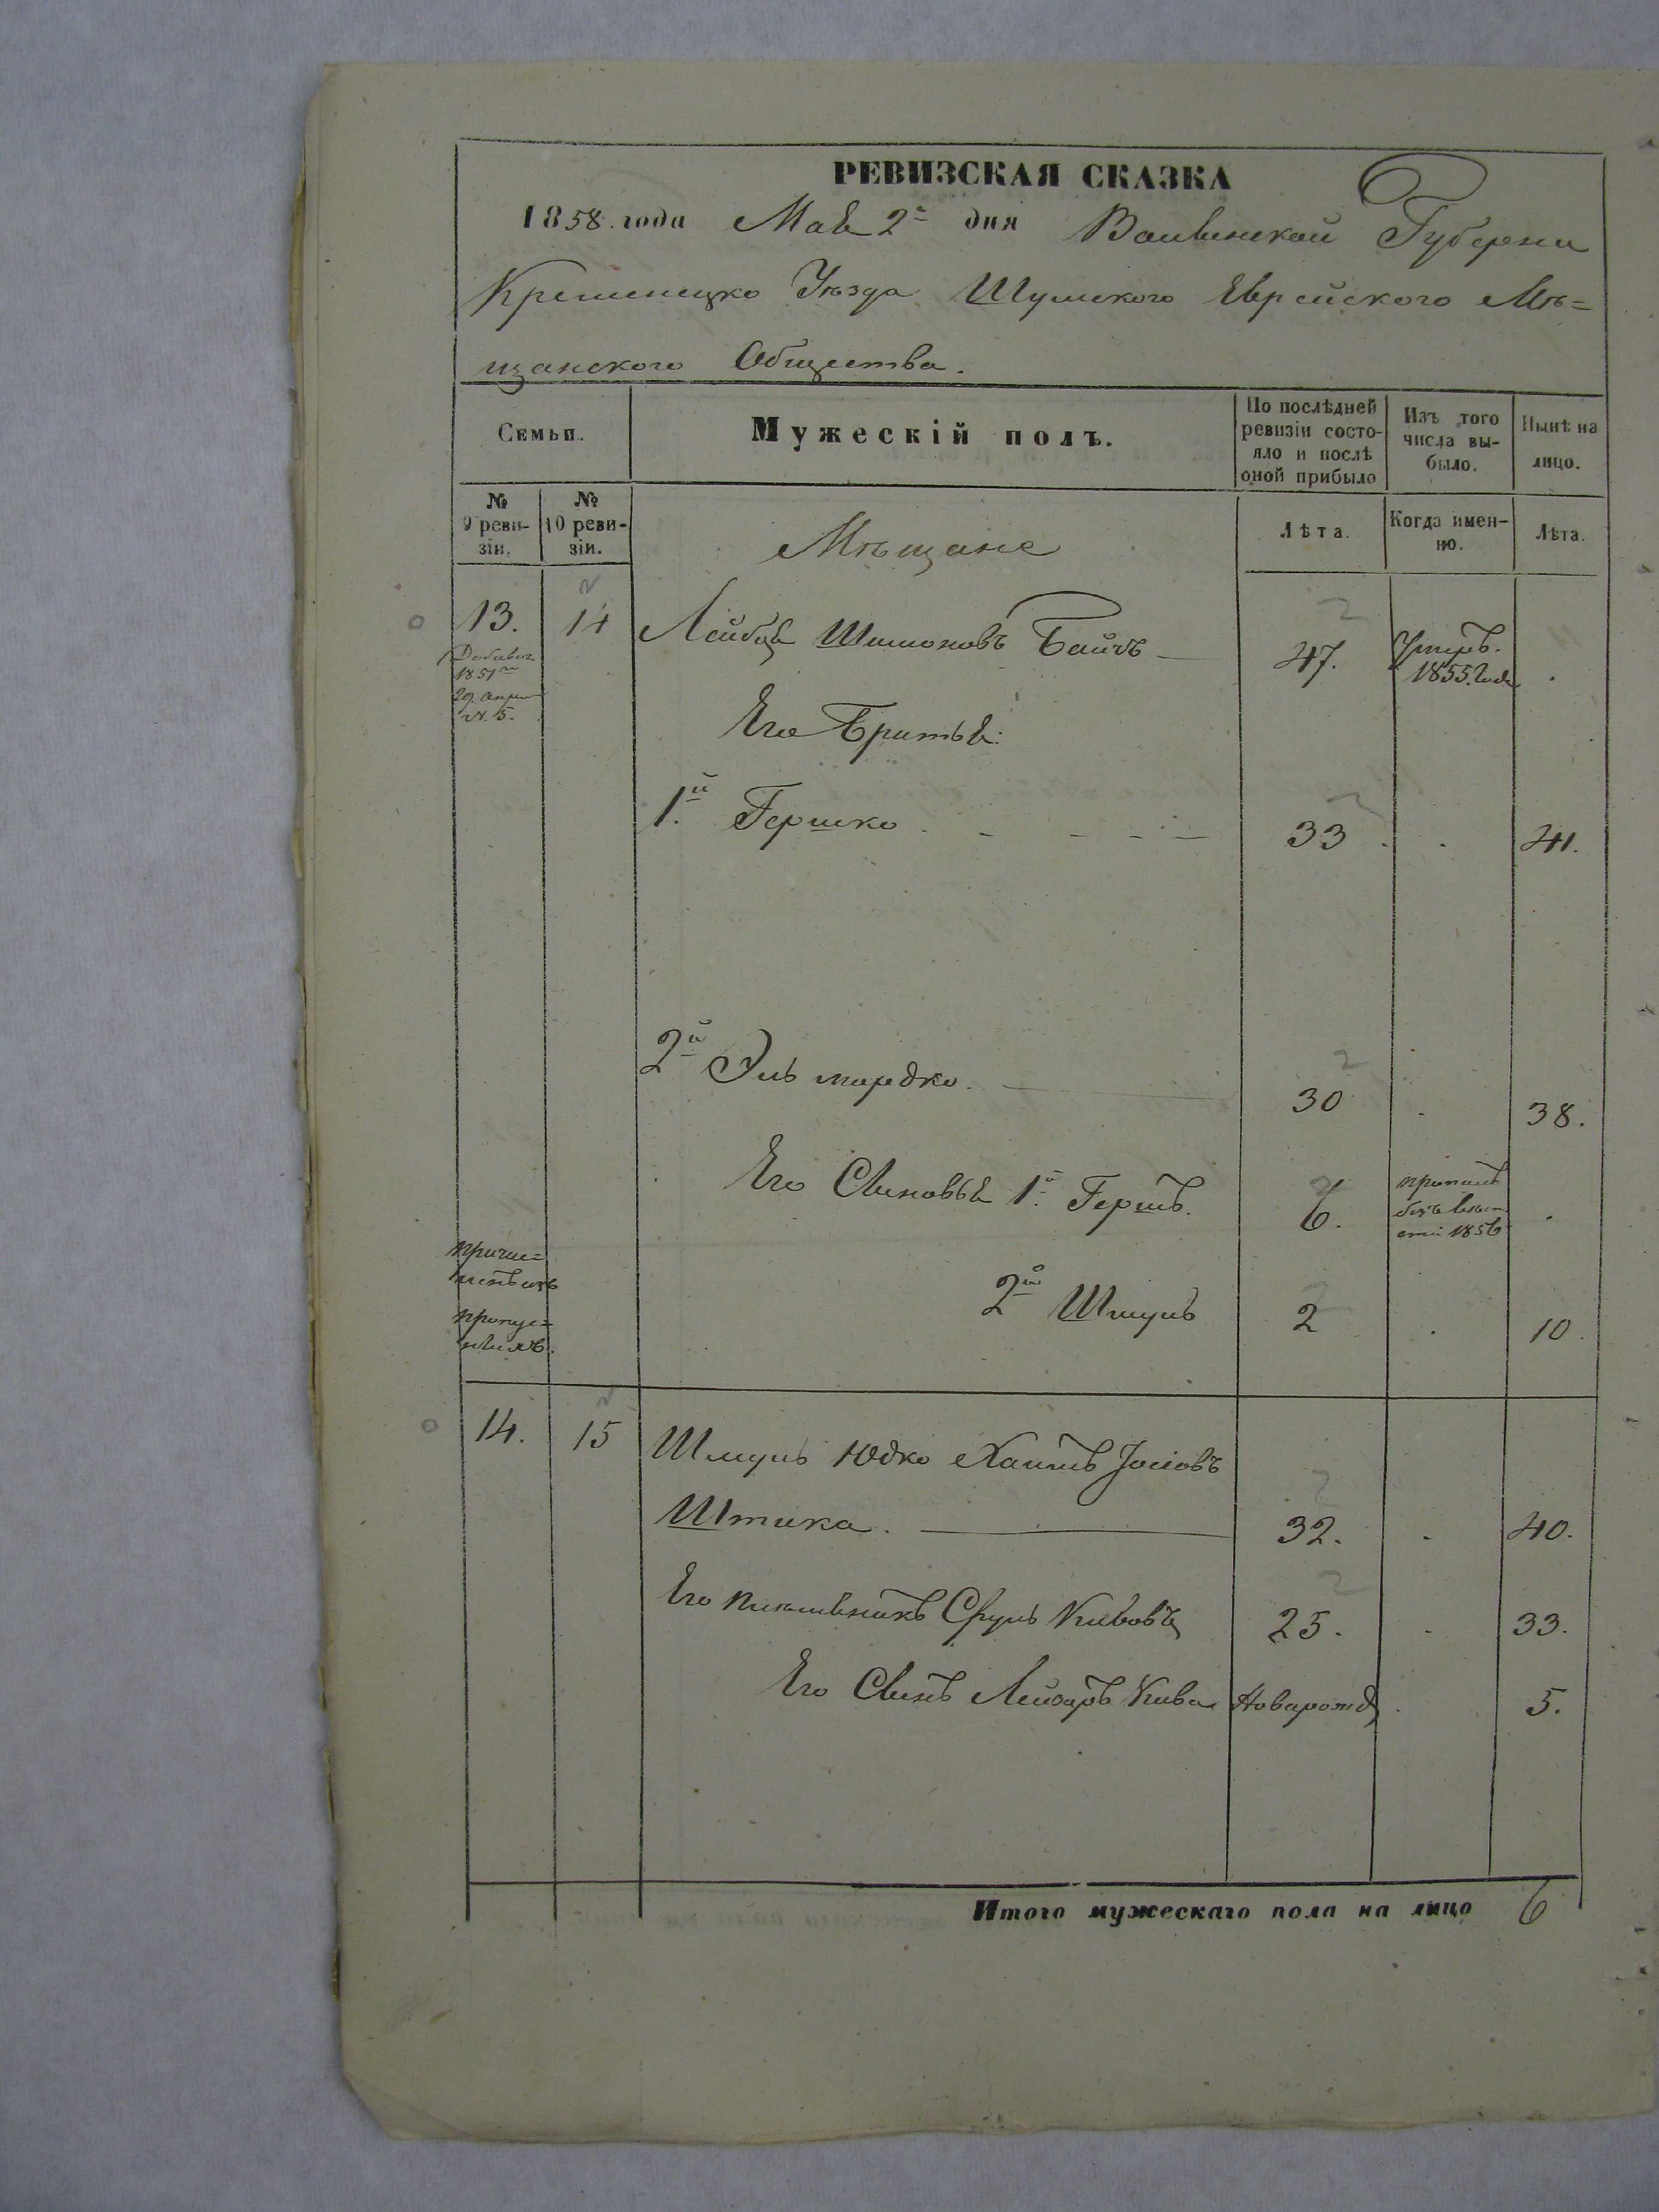 РЕВИЗСКАЯ СКАЗКА
1858 года Мая 2го дня Волынской Губерни
Кременецко Уѣзда Шумского Еврейского Мѣ=
щанского Общества.
Семьи.
Мужескій полъ.
По послѣдней ревизіи состо-
яло и послѣ
оной прибыло
Изъ того
числа вы-
было.
Нынѣ на
лицо.
№
9 реви-
зіи.
№
10 реви-
зіи.
Мѣщане
Лѣта.
Когда имен-
но.
Лѣта.
13. 14 Лейбца Шимоновъ 47. Умеръ.
1855. Года
1851го
29. апре
№. 5.
Его Братья:
1.й Гершко 33 41.
2й Эль мордко. 30 38.
Его Сыновья 1й Гершъ. 6. пропалъ
безъ вѣст
1856
2й Шмуль 2 10
14. 15 Шмуль Юдко Хаимъ Іосіовъ
Штика. 32. 40.
Его племѣникъ Сруль Кивовъ 25. 33.
Его Сынъ Лейзоръ Кива Новарожд 5.
Итого мужескаго пола на лицо 6